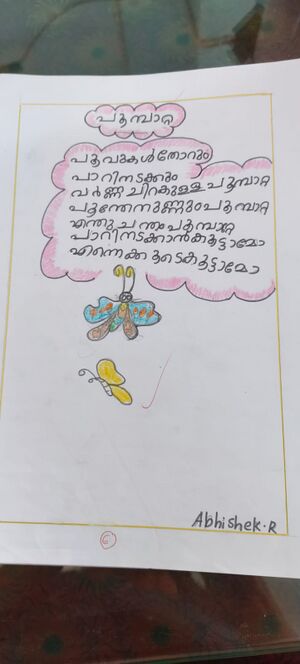 പൂമ്പാറ്റ
പൂവുകൾതോറും
പാറിനടക്കും
വർണ്ണചിറകുള്ള പൂമ്പാറ്റ
പൂന്തേനുണ്ണും പൂമ്പാറ്റ
എന്തു ചന്തം പൂമ്പാറ്റ
പാറിനടക്കാൻകൂട്ടാമോ
എന്നെക്കൂടെകൂട്ടാമോ
Abhishek.R
6